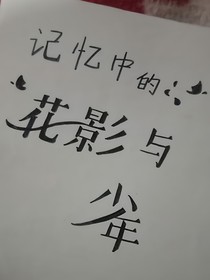 记忆中的
花影与
少年